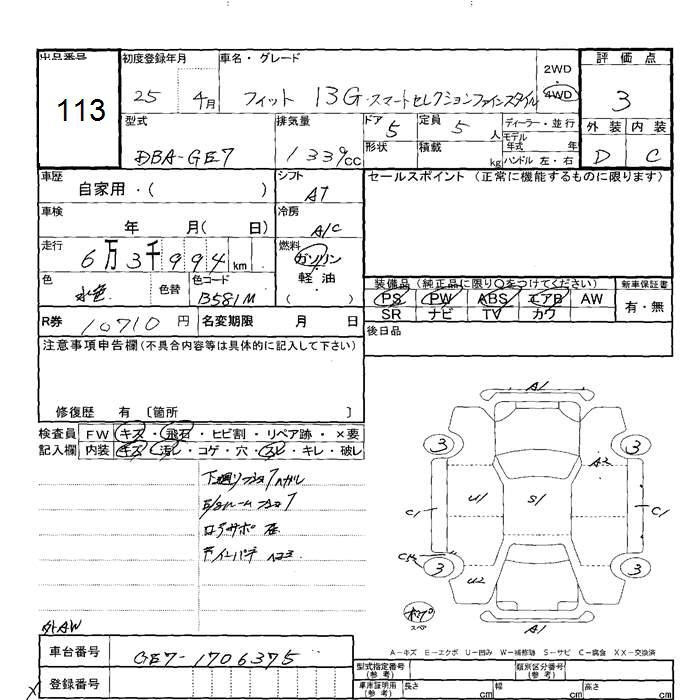 出品番号 初度登録年月 車名・グレード 2WD 評価点
113 25 4月 フィット 13G・スマートセレクションファインスタイル 4WD 3
型式 排気量 ドア 5 定員 5 人 ディーラー・並行 外装 内装
DBA-GE7 1339cc 形状 積載 kg モデル年式 年 D C
ハンドル 左・右
車歴 自家用・( ) シフト AT セールスポイント (正常に機能するものに限ります)
車検 年 月( 日) 冷房 A/C
走行 6万3千994km 燃料 ガソリン
軽油
色 水色 色替 色コード B581M ( ) 装備品 (純正品に限り○をつけてください) 新車保証書
PS PW ABS エアB AW 有・無
R券 10710円 名変期限 月 日 SR ナビ TV カワ
後日品
注意事項申告欄 (不具合内容等は具体的に記入して下さい)
修復歴 有 〔箇所 〕
検査員 FW キズ・飛石・ヒビ割・リペア跡・×要
記入欄 内装 キズ・汚レ・コゲ・穴・スレ・キレ・破レ
A1
3 3
A2
U1 S1
C1 C1
3 3
U2
A1
スペ
外AW
A-キズ E-エクボ U-凹み W-補修跡 S-サビ C-腐食 XX-交換済
車台番号 GE7-1706375
型式指定番号(参考) 類別区分番号(参考)
登録番号 車庫証明用(参考) 長さ cm 幅 cm 高さ cm